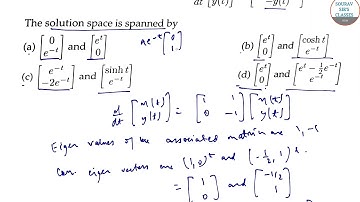 SOURAV
SIR'S
CLASSES
dt [y(t)] [-y(t)]
The solution space is spanned by
(a) [0 e^{-t}] and [e^t 0]
ae^{-t} [0 1]
(b) [e^t 0] and [cosh t e^{-t}]
(c) [e^{-t} -2e^{-t}] and [sinh t e^{-t}]
(d) [e^t 0] and [e^t - 1/2 e^{-t} e^{-t}]
d/dt [x(t) y(t)] = [1 1 0 -1] [x(t) y(t)]
Eigen values of the associated matrix are 1, -1
Corr. eigen vectors are (1, 0)^t and (-1/2, 1)^t.
= [1 0] and [-1/2 1]